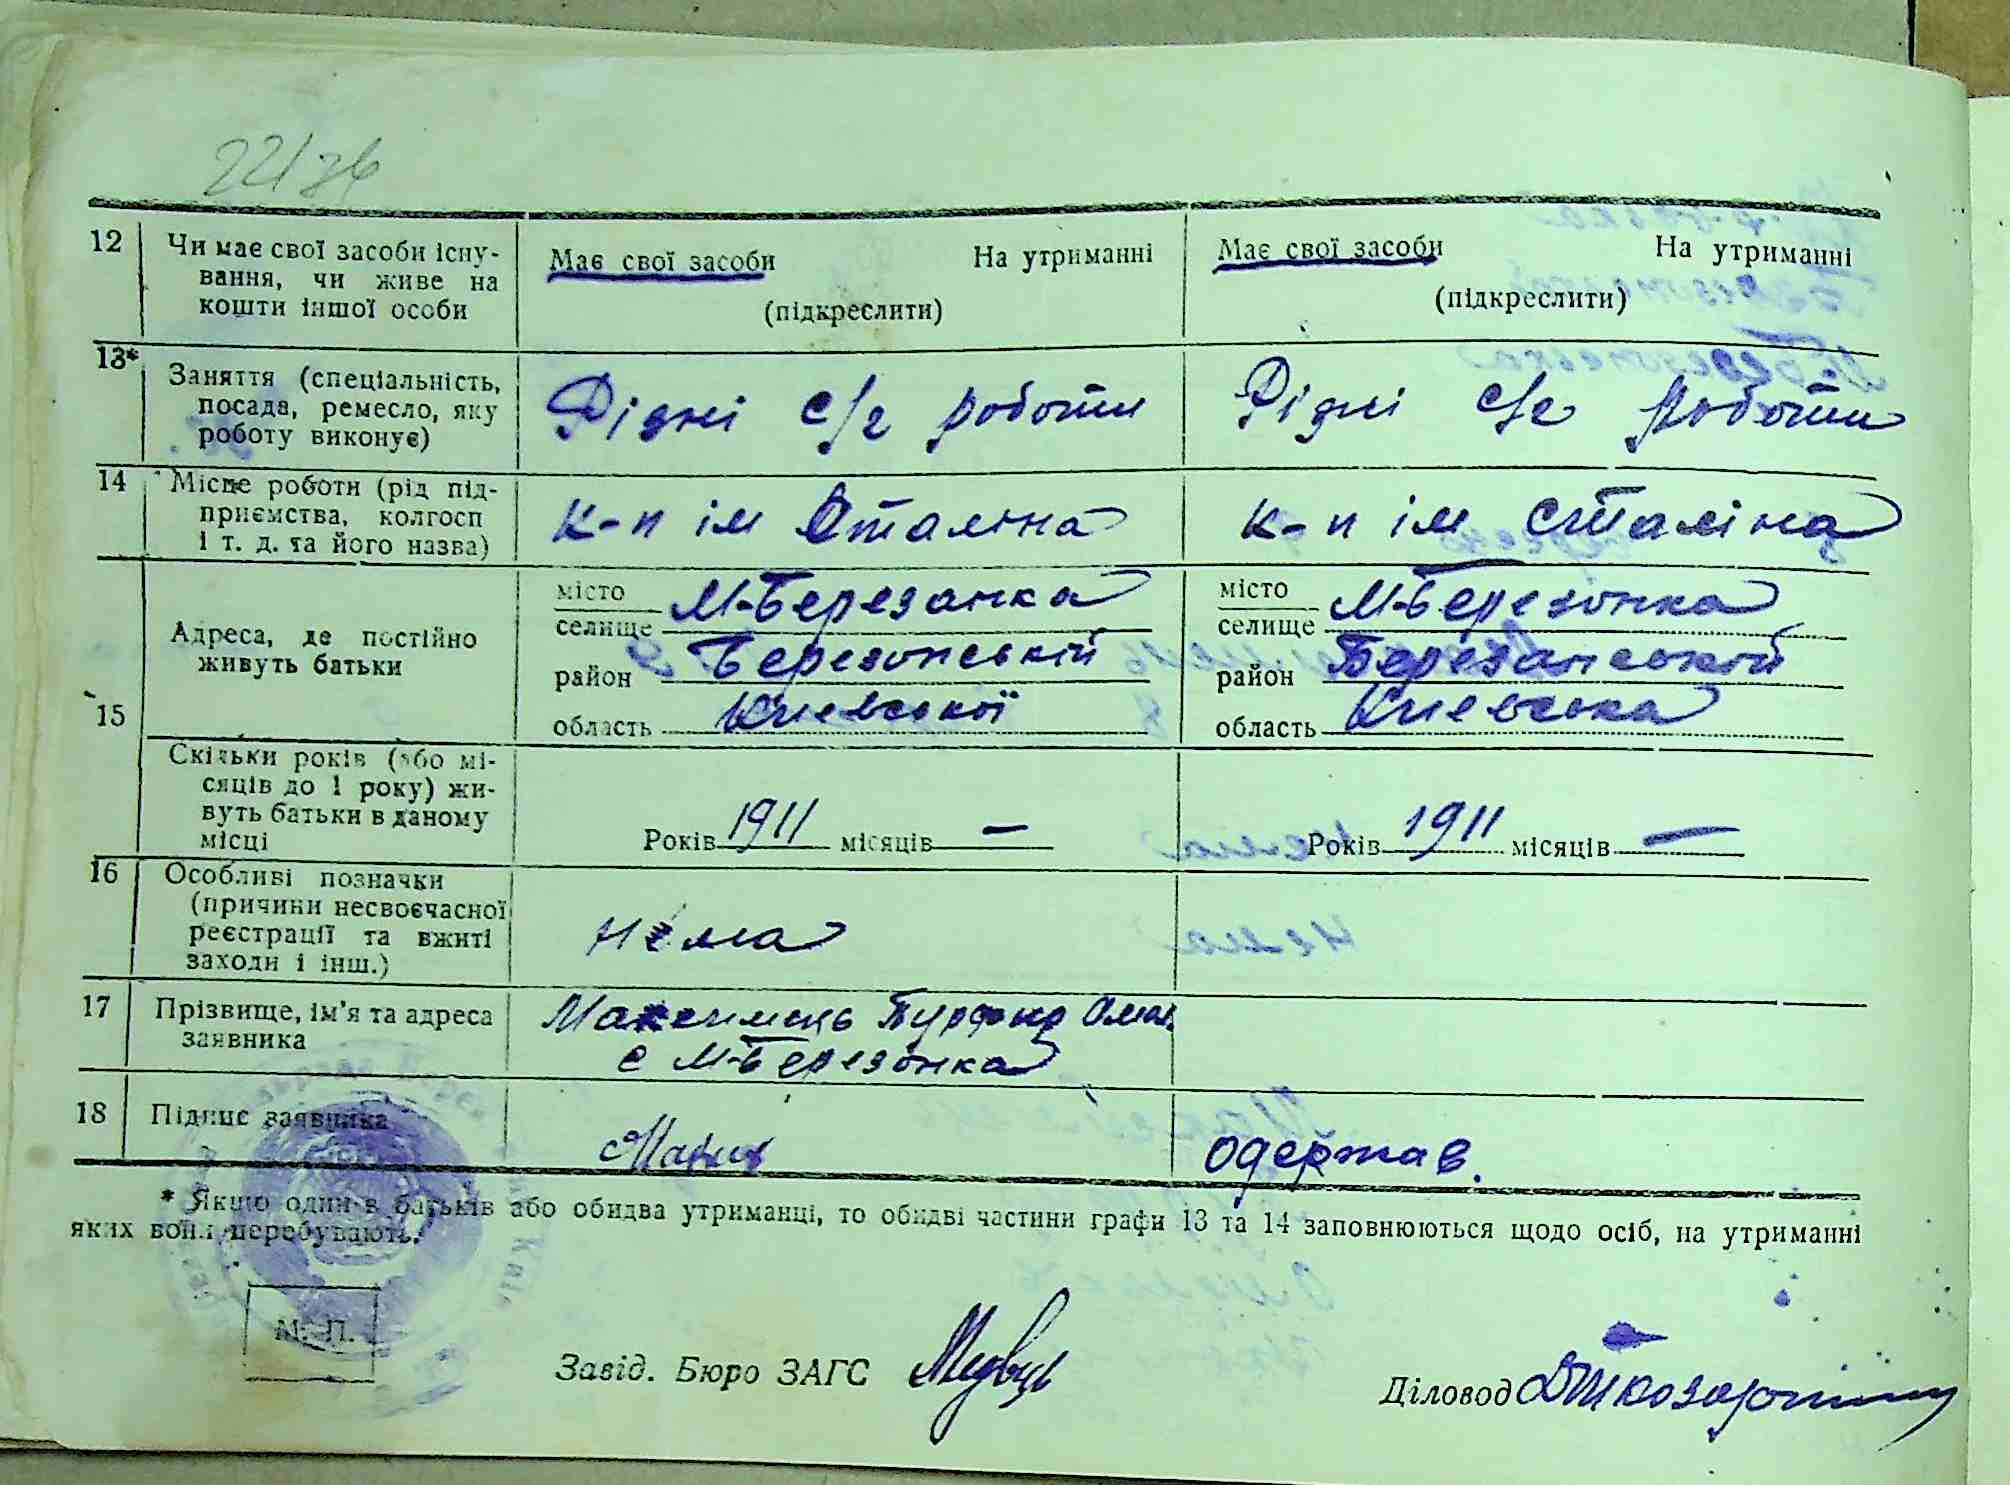 22/
12 Чи має свої засоби існу-
вання, чи живе на
кошти іншої особи
Має свої засоби На утриманні
(підкреслити)
Має свої засоби На утриманні
(підкреслити)
13* Заняття (спеціальність,
посада, ремесло, яку
роботу виконує)
Рідні с/г роботи
Рідні с/г роботи
14 Місце роботи (рід під-
приємства, колгосп
і т. д. та його назва)
к-п ім Сталіна
к-п ім Сталіна
15 Адреса, де постійно
живуть батьки
місто
селище М-Березанка
район Березонській
область Киевської
місто
селище М-Березонка
район Березанський
область Киевська
Скільки років (або мі-
сяців до 1 року) жи-
вуть батьки в даному
місці
Років 1911 місяців —
Років 1911 місяців —
16 Особливі позначки
(причини несвоєчасної
реєстрації та вжиті
заходи і інш.)
нема
17 Прізвище, ім'я та адреса
заявника
с М-Березонка
18 Підпис заявника
одержав.
* Якщо один з батьків або обидва утриманці, то обидві частини графи 13 та 14 заповнюються щодо осіб, на утриманні
яких вони перебувають.
М. П.
Завід. Бюро ЗАГС
Діловод